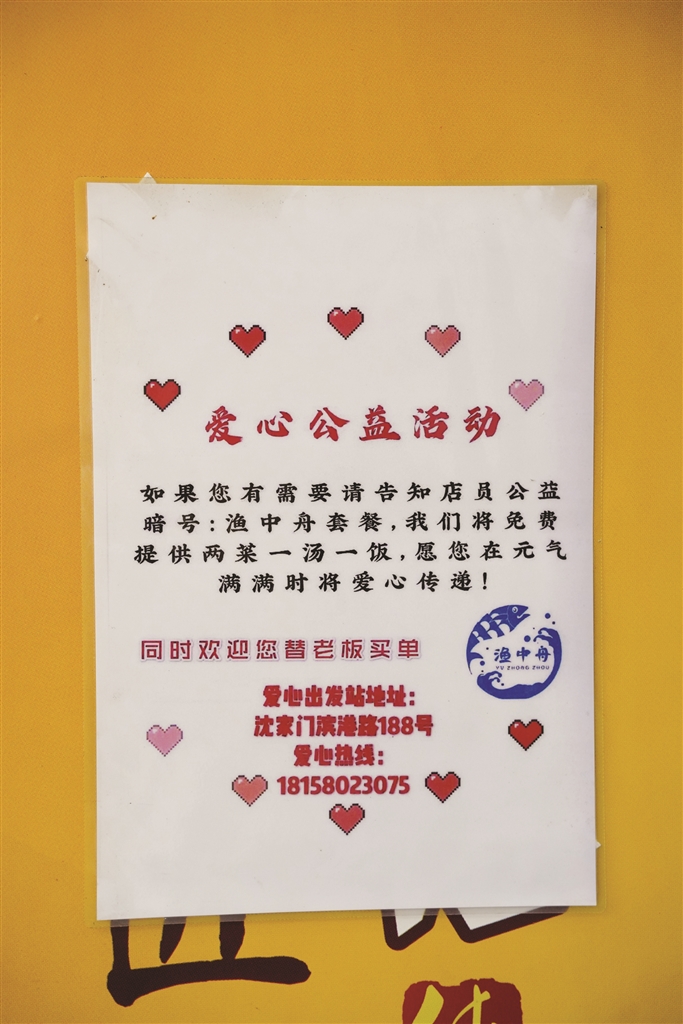 爱心公益活动
如果您有需要请告知店员公益
暗号:渔中舟套餐,我们将免费
提供两菜一汤一饭,愿您在元气
满满时将爱心传递!
同时欢迎您替老板买单
渔中舟
YU ZHONG ZHOU
爱心出发站地址:
沈家门滨港路188号
爱心热线:
18158023075